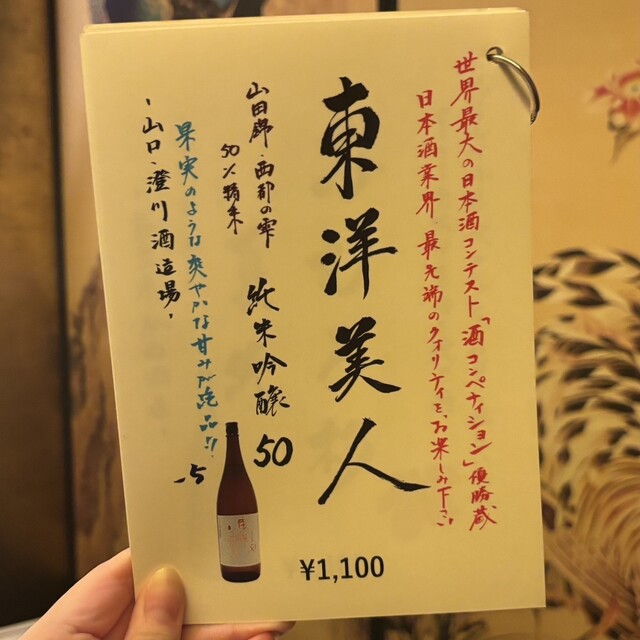 世界最大の日本酒コンテスト「酒コンペティション」優勝蔵
日本酒業界 最先端のクオリティを、お楽しみ下さい
東洋美人
純米吟醸 50
山田錦・西都の雫
50%精米
果実のような爽やかな甘みが絶品!!
-5
-山口・澄川酒造場-
¥1,100